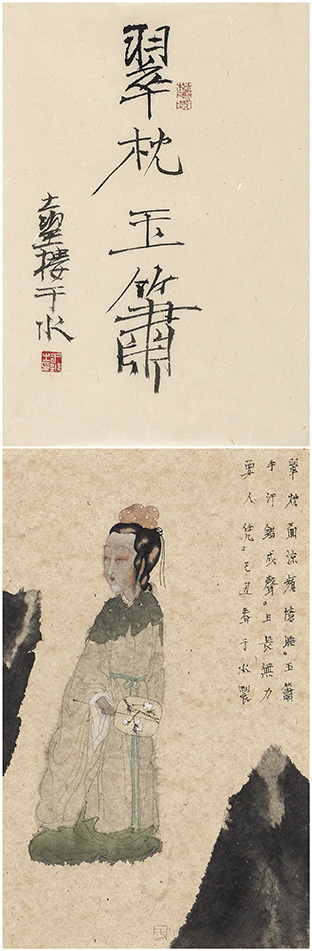 翠枕
玉簫
樓于水
翠枕面涼頻憶睡。玉簫
手汗錯成聲。日長無力
要人凭。己丑春于水製